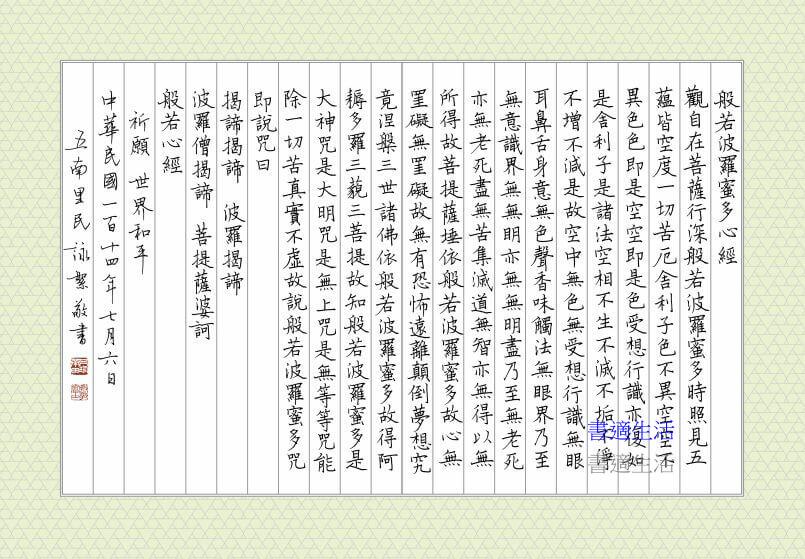 般若波羅蜜多心經
觀自在菩薩行深般若波羅蜜多時照見五
蘊皆空度一切苦厄舍利子色不異空空不
異色色即是空空即是色受想行識亦復如
是舍利子是諸法空相不生不滅不垢不淨
不增不減是故空中無色無受想行識無眼
耳鼻舌身意無色聲香味觸法無眼界乃至
無意識界無無明亦無無明盡乃至無老死
亦無老死盡無苦集滅道無智亦無得以無
所得故菩提薩埵依般若波羅蜜多故心無
罣礙無罣礙故無有恐怖遠離顛倒夢想究
竟涅槃三世諸佛依般若波羅蜜多故得阿
耨多羅三藐三菩提故知般若波羅蜜多是
大神咒是大明咒是無上咒是無等等咒能
除一切苦真實不虛故說般若波羅蜜多咒
即說咒曰
揭諦揭諦 波羅揭諦
波羅僧揭諦 菩提薩婆訶
般若心經
祈願 世界和平
中華民國一百十四年七月六日
五南里民 詠絜敬書
書適生活
書適生活